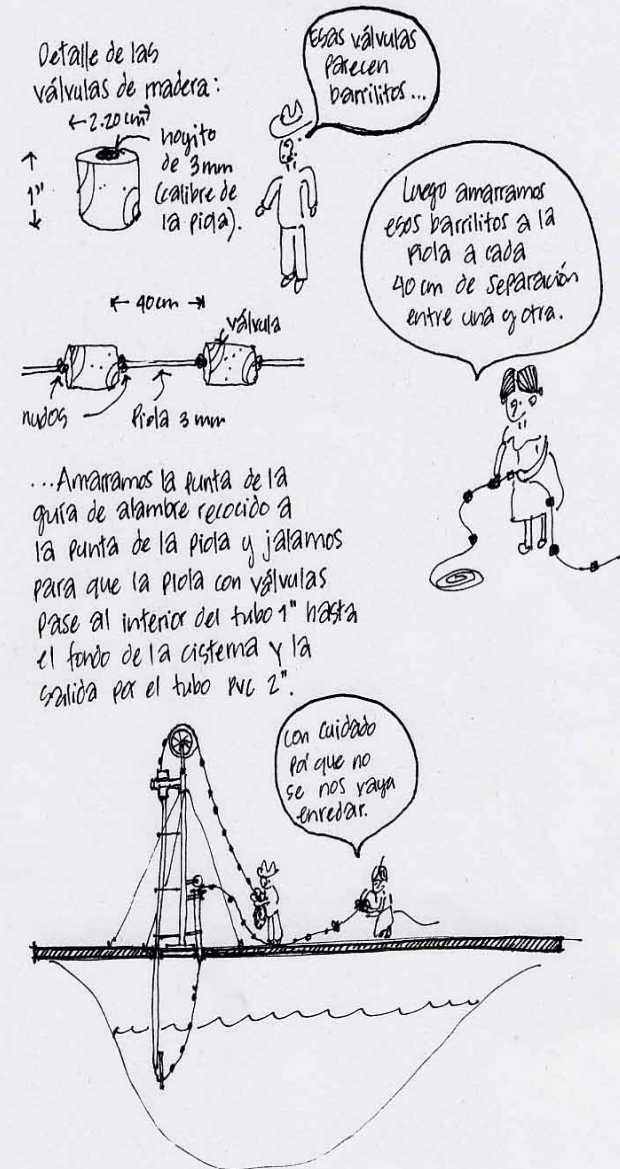 Detalle de las
válvulas de madera:
2.20 cm
hoyito
de 3mm
(calibre de
la piola).
1"
Esas válvulas
parecen
barrilitos...
Luego amarramos
esos barrilitos a la
piola a cada
40 cm de separación
entre una y otra.
40 cm
válvula
nudos
Piola 3 mm
...Amarramos la punta de la
guía de alambre recocido a
la punta de la piola y jalamos
para que la piola con válvulas
pase al interior del tubo 1" hasta
el fondo de la cisterna y la
salida por el tubo PVC 2".
con cuidado
pa' que no
se nos vaya
enredar.